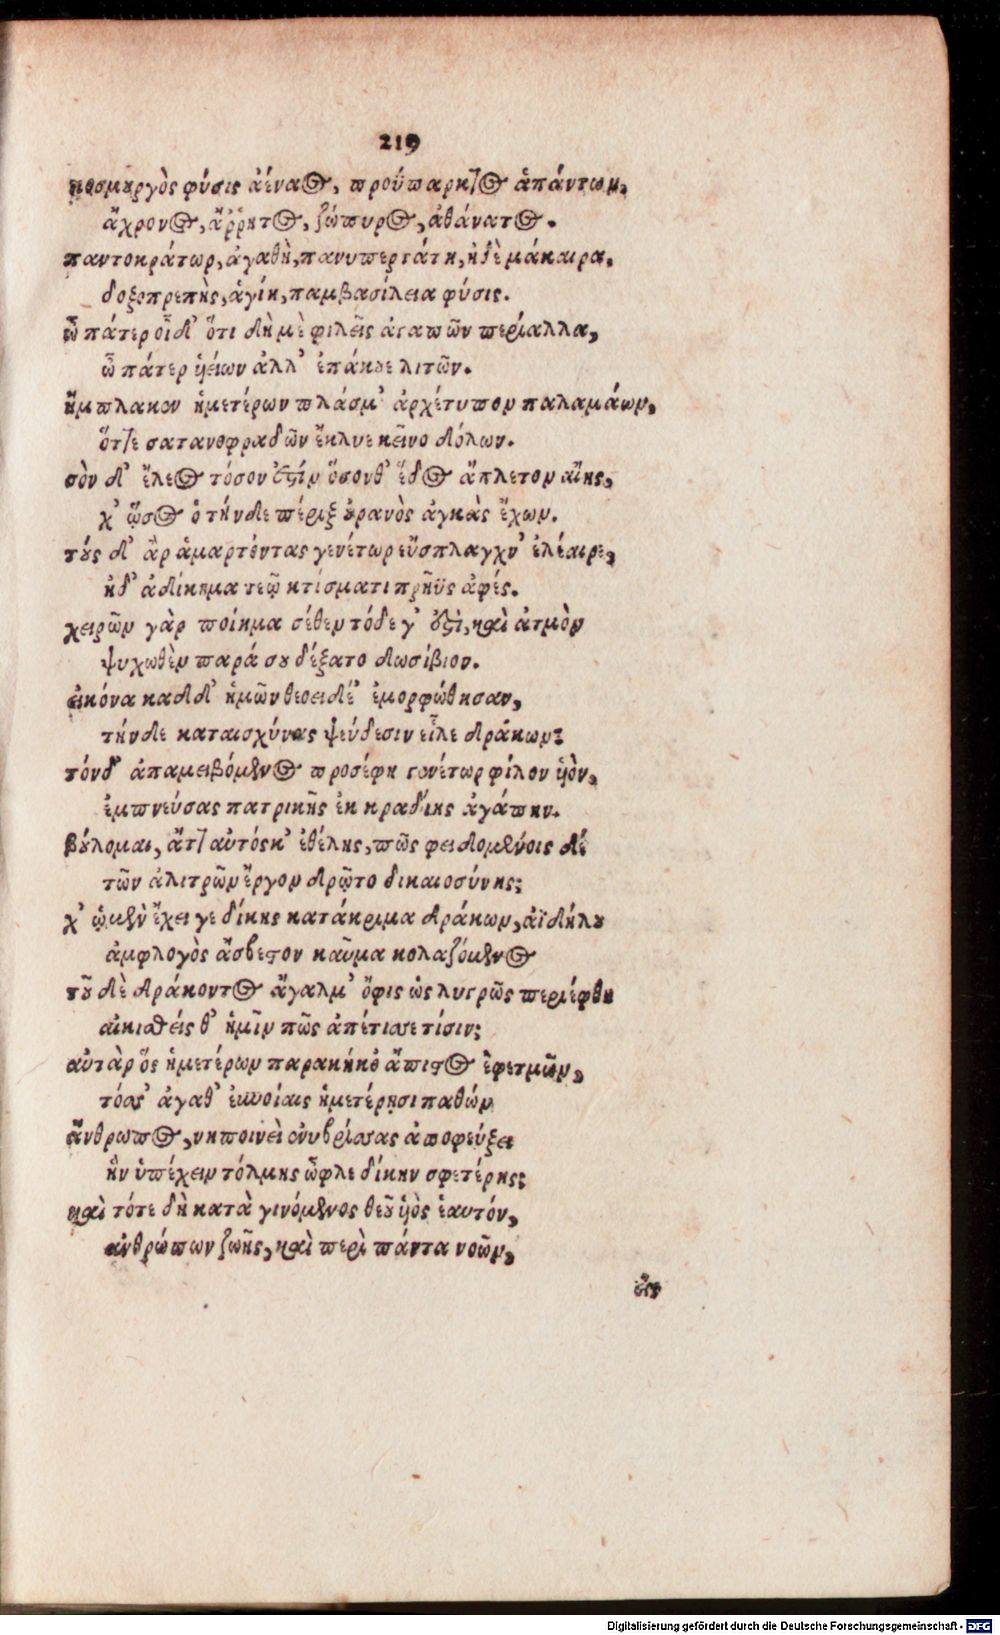 219
κοσμουργὸς φύσις ἀέναος, προϋπαρκτος ἁπάντων,
ἄχρονος, ἄῤῥητος, ζώπυρος, ἀθάνατος.
παντοκράτωρ, ἀγαθὴ, πανυπερτάτη, ἠδὲ μάκαιρα,
δοξοπρεπὴς, ἁγίη, παμβασίλεια φύσις.
ὦ πάτερ οἶδ' ὅτι δὴ μὲ φιλεῖς ἀγαπῶν περίαλλα,
ὦ πάτερ ἡείων ἀλλ' ἐπάκουε λιτῶν.
ἤμπλακον ἡμετέρων πλάσμ' ἀρχέτυπον παλαμάων,
ὅττε σατανοφραδῶν ἔκλυε κεῖνο δόλων.
σὸν δ' ἔλεος τόσον ἐστὶν ὅσονθ' ἕδος ἄπλετον αἴης,
χ' ὥσος ὁ τήνδε πέριξ οὐρανὸς ἀγκὰς ἔχων.
τοὺς δ' ἂρ ἁμαρτόντας γενέτωρ εὔσπλαγχν' ἐλέαιρε,
ἠδ' ἀδίκημα τεῷ κτίσματι πρηῢς ἀφές.
χειρῶν γὰρ ποίημα σέθεν τόδε γ' ἐστὶ, καὶ ἀτμὸν
ψυχωθὲν παρά σου δέξατο δωσίβιον.
εἰκόνα καδδ' ἡμῶν θεοειδέ' ἐμορφώθησαν,
τήνδε καταισχύνας ψεύδεσιν εἷλε δράκων;
τόνδ' ἀπαμειβόμενος προσέφη γενέτωρ φίλον ἡόν,
ἐμπνεύσας πατρικῆς ἐκ κραδίης ἀγάπην.
βούλομαι, ἅττ αὐτός κ' ἐθέλης, πῶς φειδομένοις δέ
τῶν ἀλιτρῶν ἔργον δρῷτο δικαιοσύνης;
χ' ᾧ μὲν ἔχει γε δίκης κατάκριμα δράκων, ἀϊδήλου
ἀμφλογὸς ἄσβεστον καῦμα κολαζόμενος
τοῦ δὲ δράκοντος ἄγαλμ' ὄφις ὡς λυγρῶς περιέφθη
αἰκισθείς θ' ἡμῖν πῶς ἀπέτισε τίσιν;
αὐτὰρ ὅς ἡμετέρων παρακήκο ἄπιστος ἐφετμῶν,
τόσσ' ἀγαθ' εὐνοίαις ἡμετέρησι παθών
ἄνθρωπος, νηποινεὶ ἐνυβρίσας ἀποφεύξει
ἣν ὑπέχειν τόλμης ὦφλε δίκην σφετέρης;
καὶ τότε δὴ κατὰ γινόμενος θεοῦ ἡὸς ἑαυτόν,
ἀνθρώπων ζωῆς, καὶ περὶ πάντα νοῶν,
εἰς
Digitalisierung gefördert durch die Deutsche Forschungsgemeinschaft - DFG